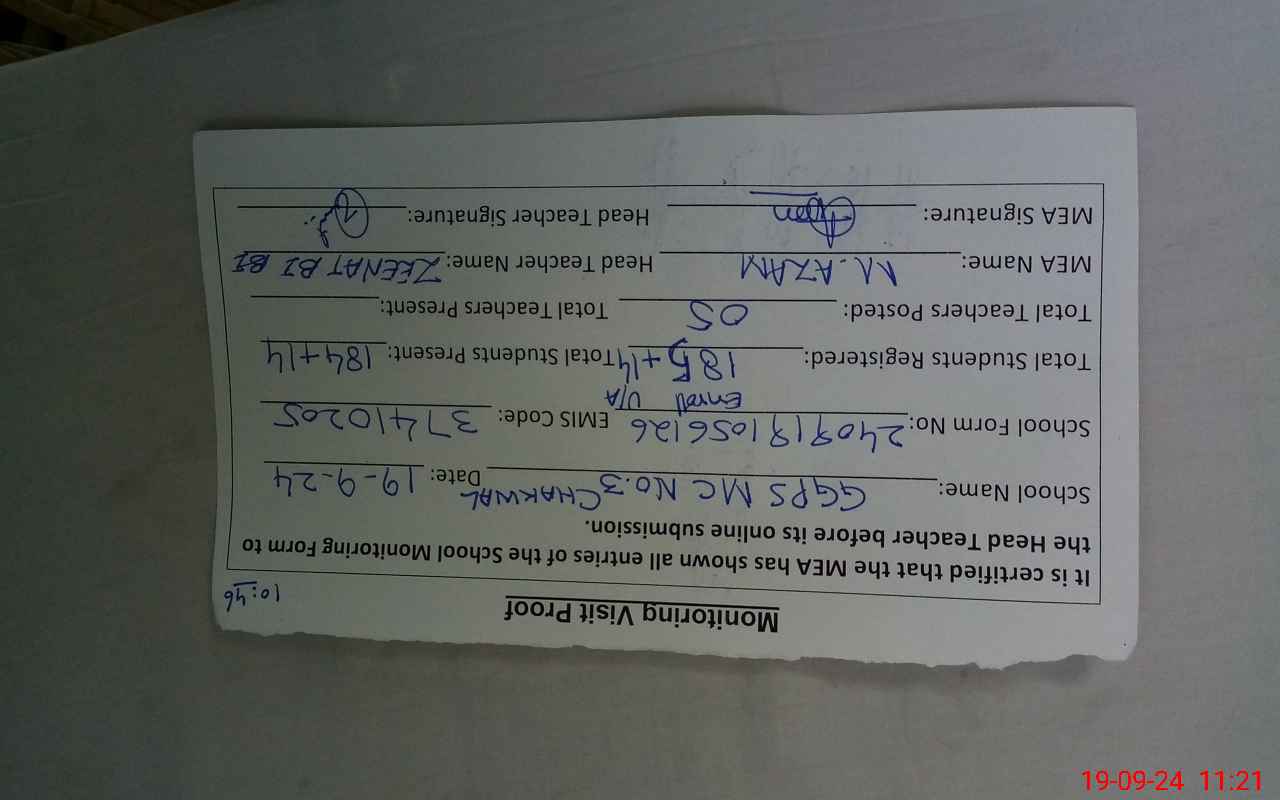 Monitoring Visit Proof
10:46
It is certified that the MEA has shown all entries of the School Monitoring Form to
the Head Teacher before its online submission.
School Name: GGPS MC NO.3 CHAKWAL Date: 19-9-24
School Form No: 2409191056126 EMIS Code: 37410205
Enroll U/A
Total Students Registered: 185+14 Total Students Present: 184+14
Total Teachers Posted: 05 Total Teachers Present:
MEA Name: M. AZAM Head Teacher Name: ZEENAT BI BI
MEA Signature: Head Teacher Signature:
19-09-24 11:21